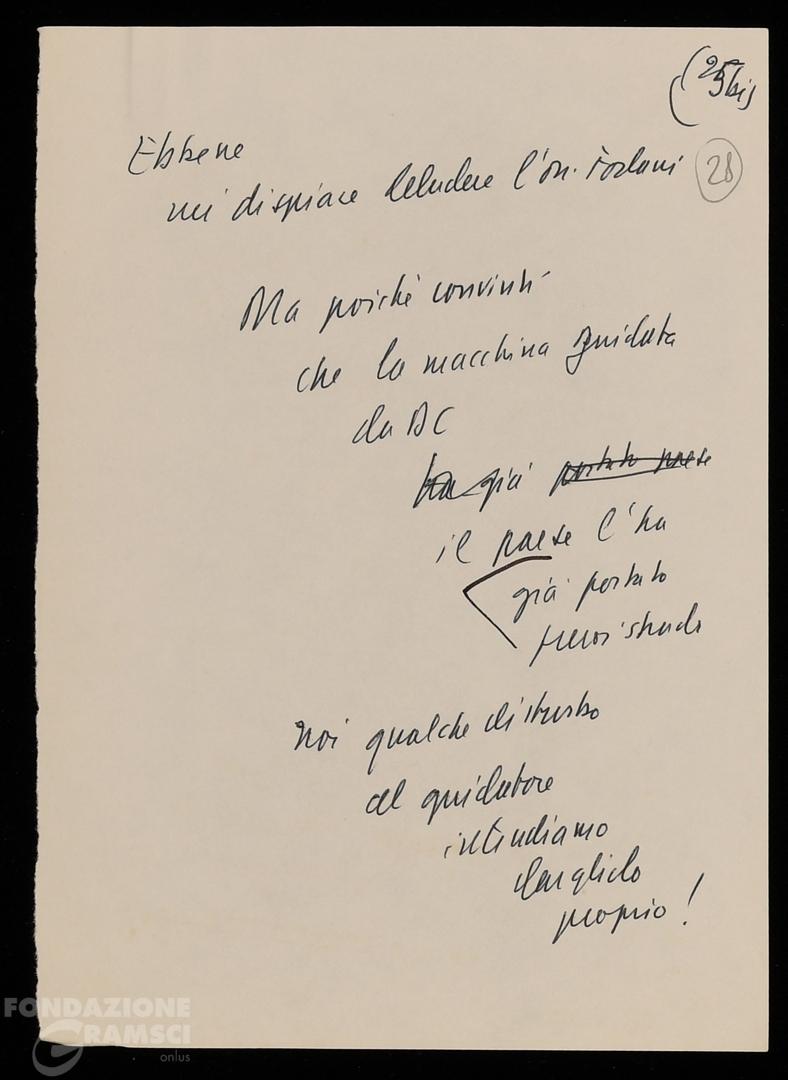 (25bis
28
Ebbene
mi dispiace deludere l'on. Forlani
Ma poiché convinti
che la macchina guidata
da DC
ha già portato paese
il paese l'ha
già portato
fuori strada
noi qualche disturbo
al guidatore
intendiamo
darglielo
proprio!
FONDAZIONE
GRAMSCI
onlus